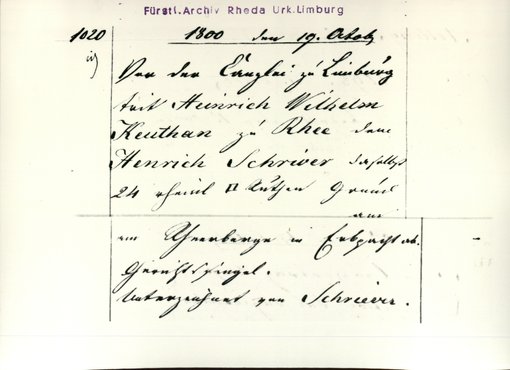 Fürstl. Archiv Rheda Urk. Limburg
1020
1800 den 19. Octob
Vor der Canzlei zu Limburg
tritt Heinrich Wilhelm
Keuthan zu Rhee dem
Henrich Schriver daselbst
24 rheinl □ Ruthen Grund
am
am in Erbpacht ab.
Gerichtssiegel.
Unterzeichnet von Schriever.